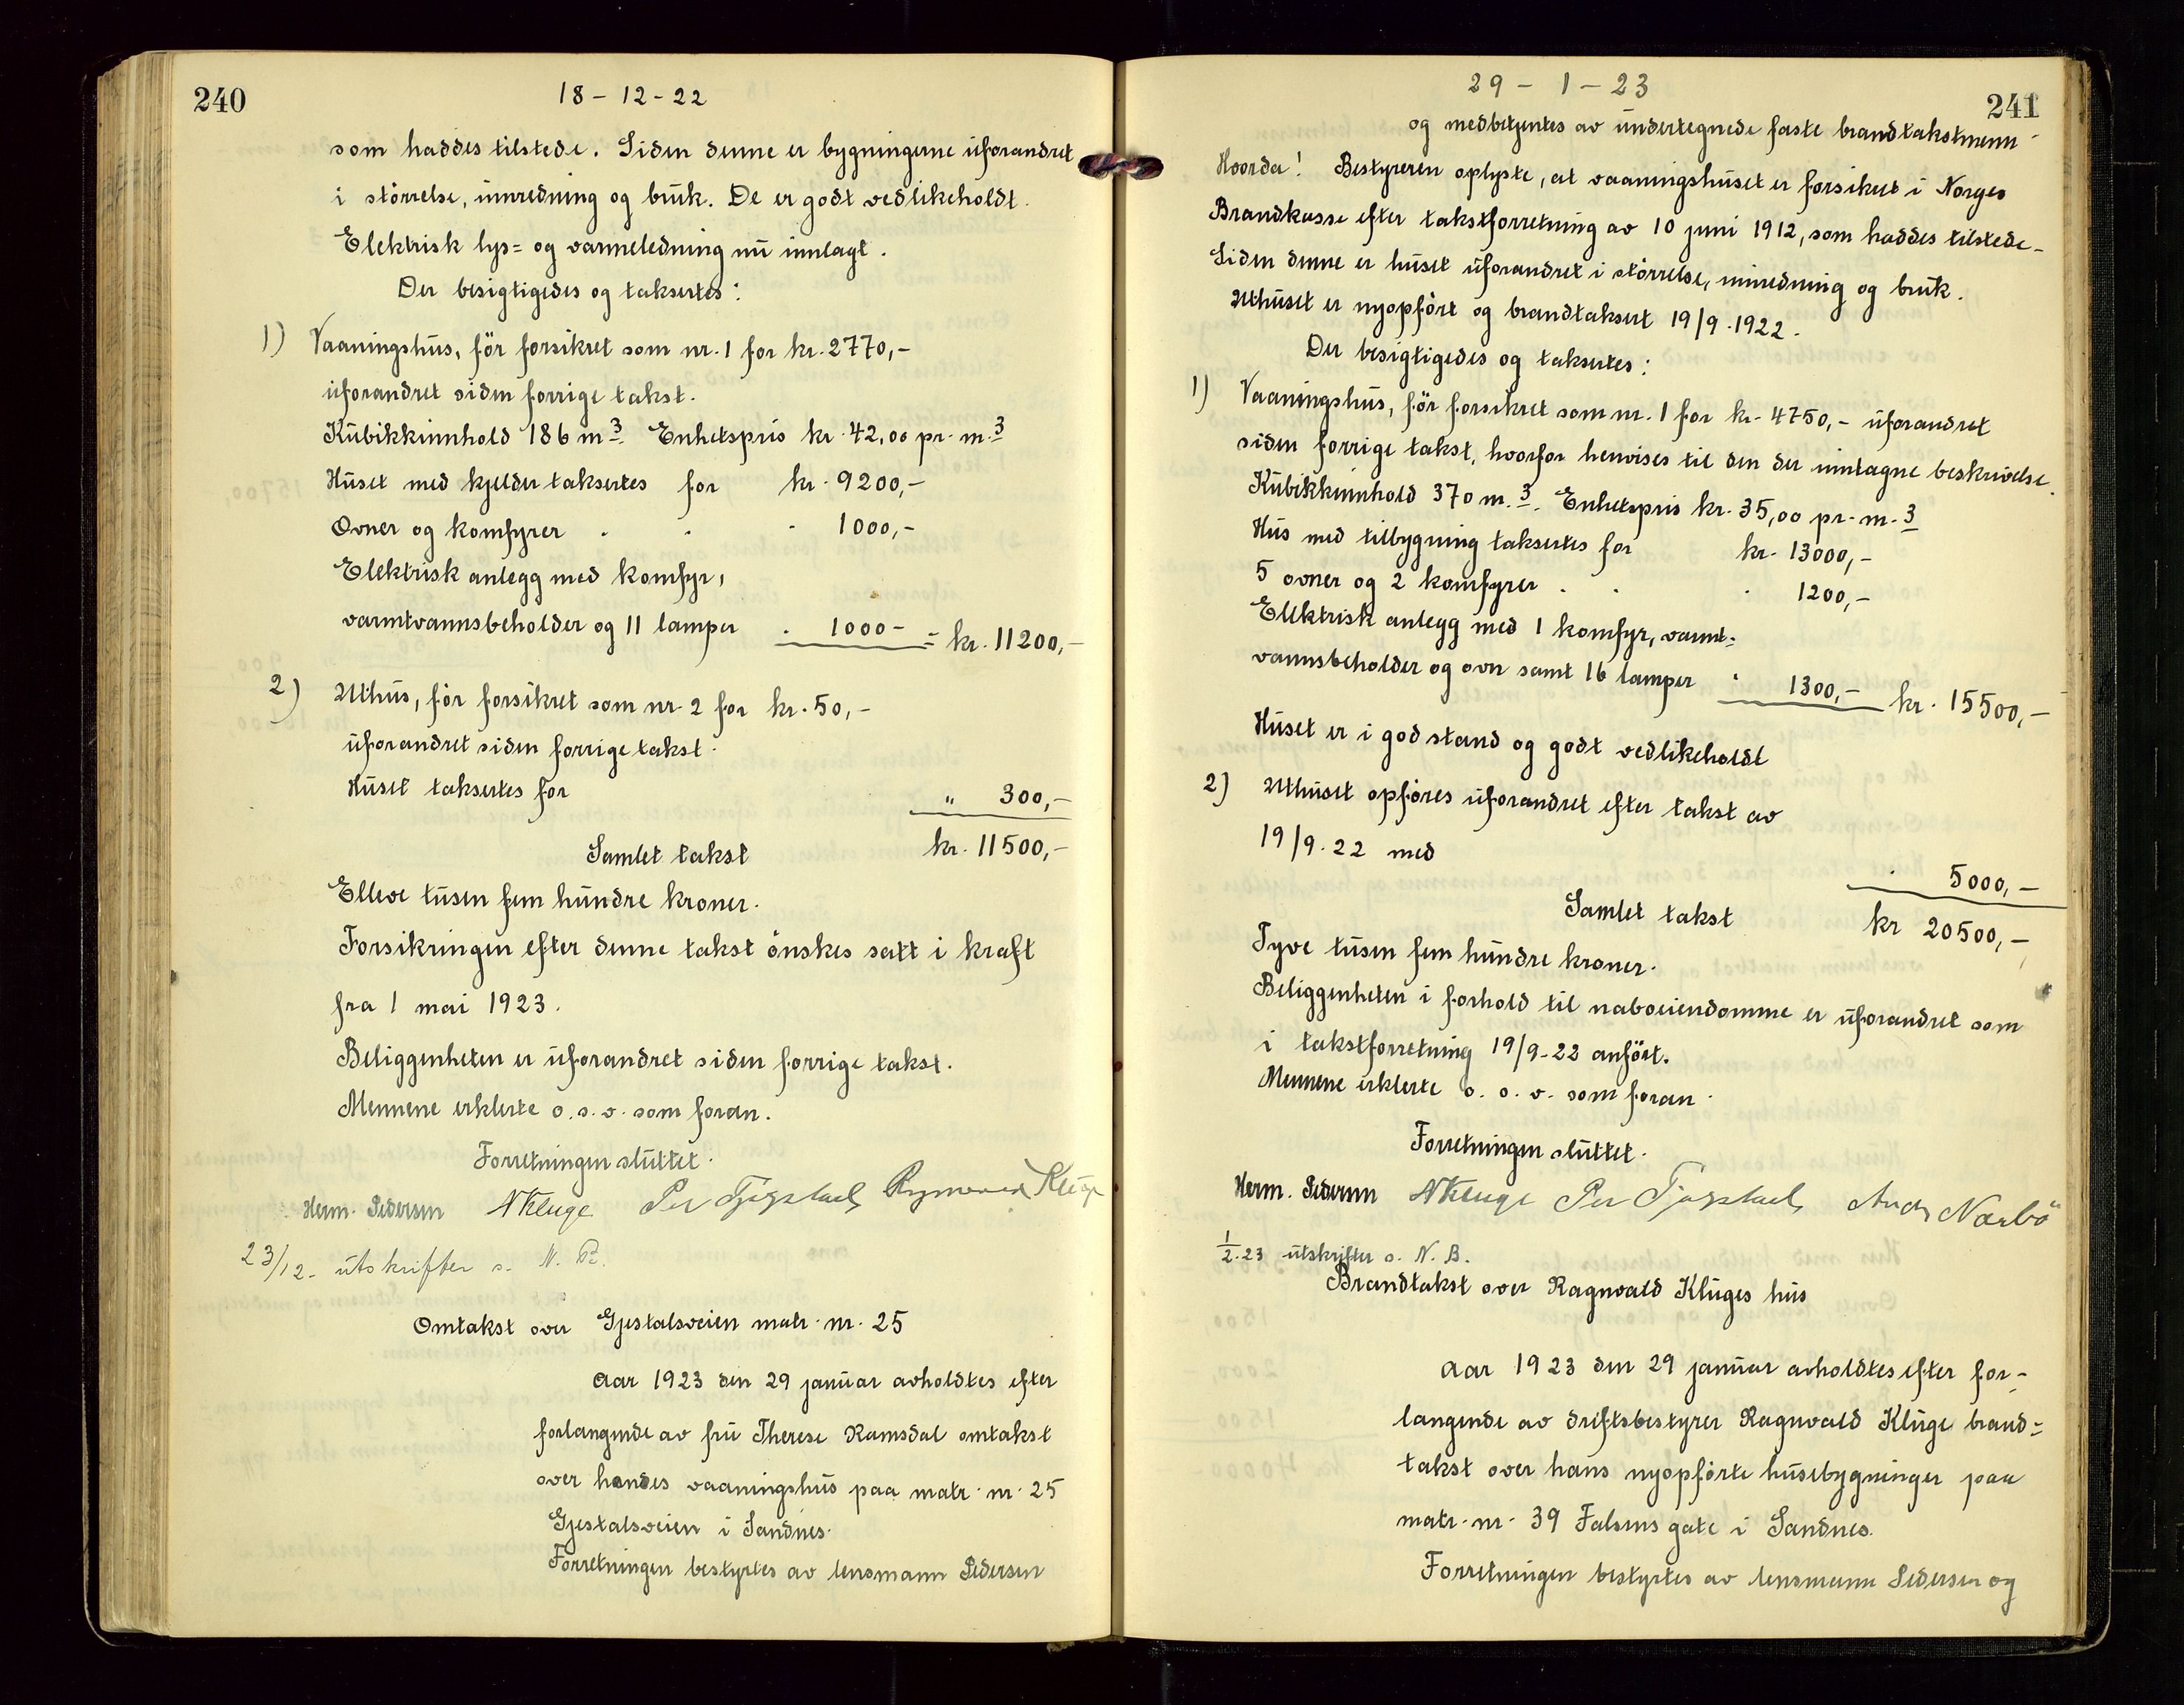 240
18-12-22
som haddes tilstede. Siden denne er bygningerne uforandret
i störrelse, innredning og bruk. De er godt vedlikeholdt.
Elektrisk lys= og varmeledning nu innlagt.
Der besigtigedes og taksertes:
1) Vaaningshus, för forsikret som nr. 1 for kr. 2770,-
uforandret siden forrige takst.
Kubikkinnhold 186 m3. Enhetspris kr. 42,00 pr. m.3
Huset med kjelder taksertes for kr. 9200,-
Ovner og komfyrer . . . 1000,-
Elektrisk anlegg med komfyr,
varmtvannsbeholder og 11 lamper . 1000- = kr. 11200,-
2) Uthus, för forsikret som nr. 2 for kr. 50,-
uforandret siden forrige takst.
Huset taksertes for " 300,-
Samlet takst kr. 11500,-
Elleve tusen fem hundre kroner.
Forsikringen efter denne takst önskes satt i kraft
fra 1 mai 1923.
Beliggenheten er uforandret siden forrige takst.
Mennene erklerte o.s.v. som foran.
Forretningen sluttet.
Herm. Pedersen N Kluge Per Tjøgstad Kluge
23/12- utskrifter s. N. B.
Omtakst over Gjestalsveien matr. nr. 25
Aar 1923 den 29 januar avholdtes efter
forlangende av fru Therese Ramsdal omtakst
over hendes vaaningshus paa matr. nr. 25
Gjestalsveien i Sandnes.
Forretningen bestyrtes av lensmann Pedersen
29-1-23
241
og medbetjentes av undertegnede faste brandtakstmenn
Hvorda! Bestyreren oplyste, at vaaningshuset er forsikret i Norges
Brandkasse efter takstforretning av 10 juni 1912, som haddes tilstede-
Siden denne er huset uforandret i störrelse, innredning og bruk.
Uthuset er nyopfört og brandtaksert 19/9.1922.
Der besigtigedes og taksertes:
1) Vaaningshus, för forsikret som nr. 1 for kr. 4750,- uforandret
siden forrige takst, hvorfor henvises til den der inntagne beskrivelse.
Kubikkinnhold 370 m.3. Enhetspris kr. 35,00 pr. m.3
Hus med tilbygning taksertes for kr. 13000,-
5 ovner og 2 komfyrer . . . 1200,-
Elektrisk anlegg med 1 komfyr, varmt=
vannsbeholder og ovn samt 16 lamper . 1300,- kr. 15500,-
Huset er i god stand og godt vedlikeholdt
2) Uthuset opføres uforandret efter takst av
19/9.22 med . 5000,-
Samlet takst kr 20500,-
Tyve tusen fem hundre kroner.
Beliggenheten i forhold til naboeiendomme er uforandret som
i takstforretning 19/9-22 anfört.
Mennene erklerte o.s.v. som foran.
Forretningen sluttet.
Herm. Pedersen N Kluge Per Tjøgstad Andr Norbö
1/2.23 utskrifter s. N. B.
Brandtakst over Ragnvald Kluges hus
Aar 1923 den 29 januar avholdtes efter for-
langende av driftsbestyrer Ragnvald Kluge brand=
takst over hans nyopførte husebygninger paa
matr. nr. 39 Falsens gate i Sandnes.
Forretningen bestyrtes av lensmann Pedersen og